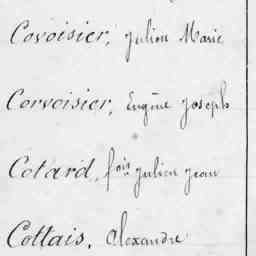 Covoisier, Julien Marie
Corvoisier, Eugène Joseph
Cotard, fois Julien Jean
Cottais, Alexandre